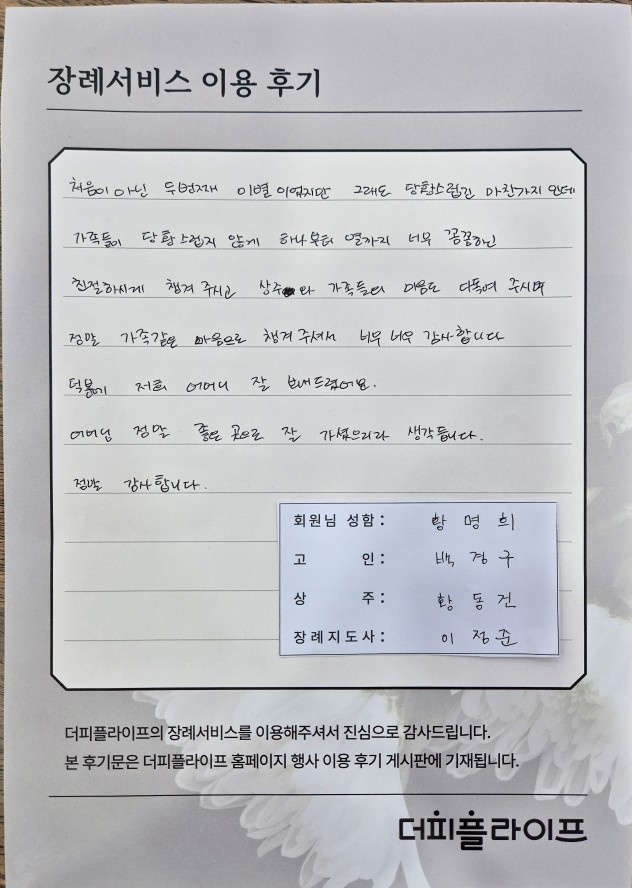 장례서비스 이용 후기
처음이 아닌 두번째 이별 이였지만 그래도 당황스럽긴 마찬가지 인데
가족들이 당황스럽지 않게 하나부터 열까지 너무 꼼꼼하신
친절하시게 챙겨 주시고 상주와 가족들의 마음도 다독여 주시며
정말 가족같은 마음으로 챙겨주셔서 너무 너무 감사합니다
덕분에 저희 어머니 잘 보내드렸어요.
어머님 정말 좋은 곳으로 잘 가셨으리라 생각듭니다.
정말 감사합니다.
회원님 성함: 황명희
고 인: 백경구
상 주: 황동건
장례지도사: 이정준
더피플라이프의 장례서비스를 이용해주셔서 진심으로 감사드립니다.
본 후기문은 더피플라이프 홈페이지 행사 이용 후기 게시판에 기재됩니다.
더피플라이프